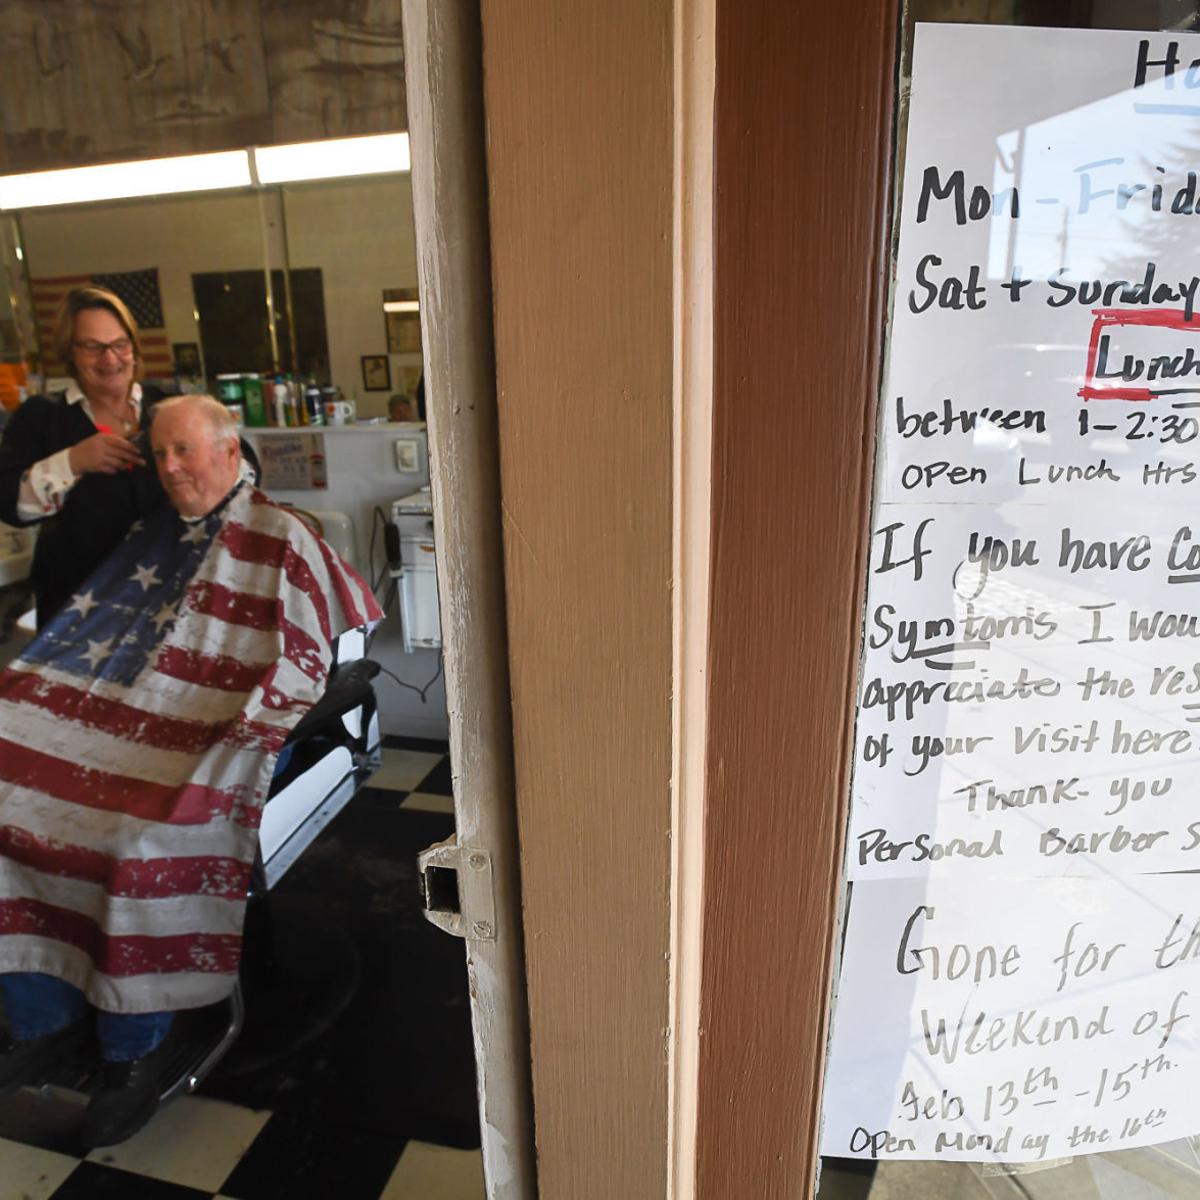 Ho
Mon - Frida
Sat + Sunday
Lunch
between 1-2:30
open Lunch Hrs
If you have Co
Symtoms I wou
appreciate the res
of your visit here
Thank-you
Personal Barber S
Gone for th
Weekend of
Feb 13th - 15th.
Open Monday the 16th